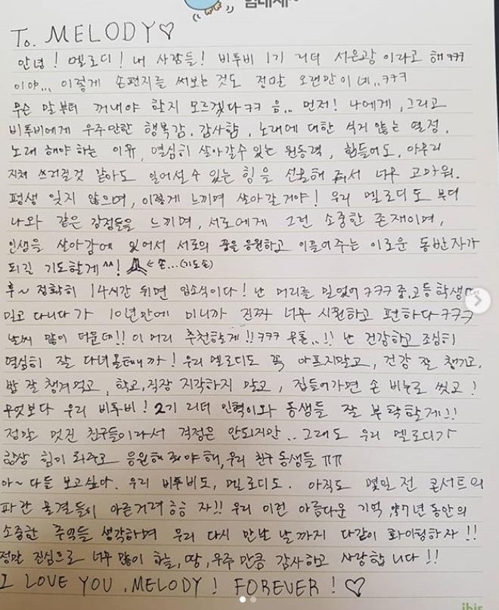 To. MELODY♡
안녕! 멜로디! 내 사람들! 비투비 1기 리더 서은광이라고 해 ㅋㅋㅋ
이야... 이렇게 손편지를 써보는 것도 정말 오랜만이네..ㅋㅋㅋ
무슨 말부터 꺼내야 할지 모르겠다ㅋㅋ 음.. 먼저! 나에게, 그리고
비투비에게 우주만한 행복감, 감사함, 노래에 대한 식지 않는 열정,
노래 해야하는 이유, 열심히 살아갈 수 있는 원동력, 힘들어도, 아무리
지쳐 쓰러질것 같아도 일어설 수 있는 힘을 선물해 줘서 너무 고마워.
평생 잊지 않으며, 이렇게 느끼며 살아갈거야! 우리 멜로디도 부디
나와 같은 감정들을 느끼며, 서로에게 그런 소중한 존재이며,
인생을 살아감에 있어서 서로의 꿈을 응원하고 이끌어주는 이로운 동반자가
되길 기도할게^^! 🙏←손...(기도손)
후~ 정확히 14시간 뒤면 입소식이다! 난 머리를 밀었어ㅋㅋㅋ 중,고등학생때
밀고 다니다가 10년만에 미니까 진짜 너무 시원하고 편하다ㅋㅋㅋ
날씨 많이 더운데!! 이 머리 추천할게!! ㅋㅋㅋ 무튼..!! 난 건강하고 조심히
열심히 잘 다녀올테니까! 우리 멜로디도 꼭 아프지말고, 건강 잘 챙기고,
밥 잘 챙겨먹고, 학교,직장 지각하지 말고, 집들어가면 손 비누로 씻고!
무엇보다 우리 비투비! 2기 리더 민혁이와 동생들 잘 부탁할게!!
정말 멋진 친구들이라서 걱정은 안되지만.. 그래도 우리 멜로디가
항상 힘이 되주고 응원해줘야해, 우리 친구 동생들 ㅠㅠ
아~ 다들 보고싶다. 우리 비투비도, 멜로디도. 아직도 몇일 전 콘서트의
파란 물결들이 아른거려 흐흐 자!! 우리 이런 아름다운 기억, 약7년 동안의
소중한 추억들 생각하며 우리 다시 만날 날까지 다같이 화이팅하자!!
정말 진심으로 너무 많이 하늘,땅,우주만큼 감사하고 사랑합니다!!
I LOVE YOU. MELODY! FOREVER!♡
ibis